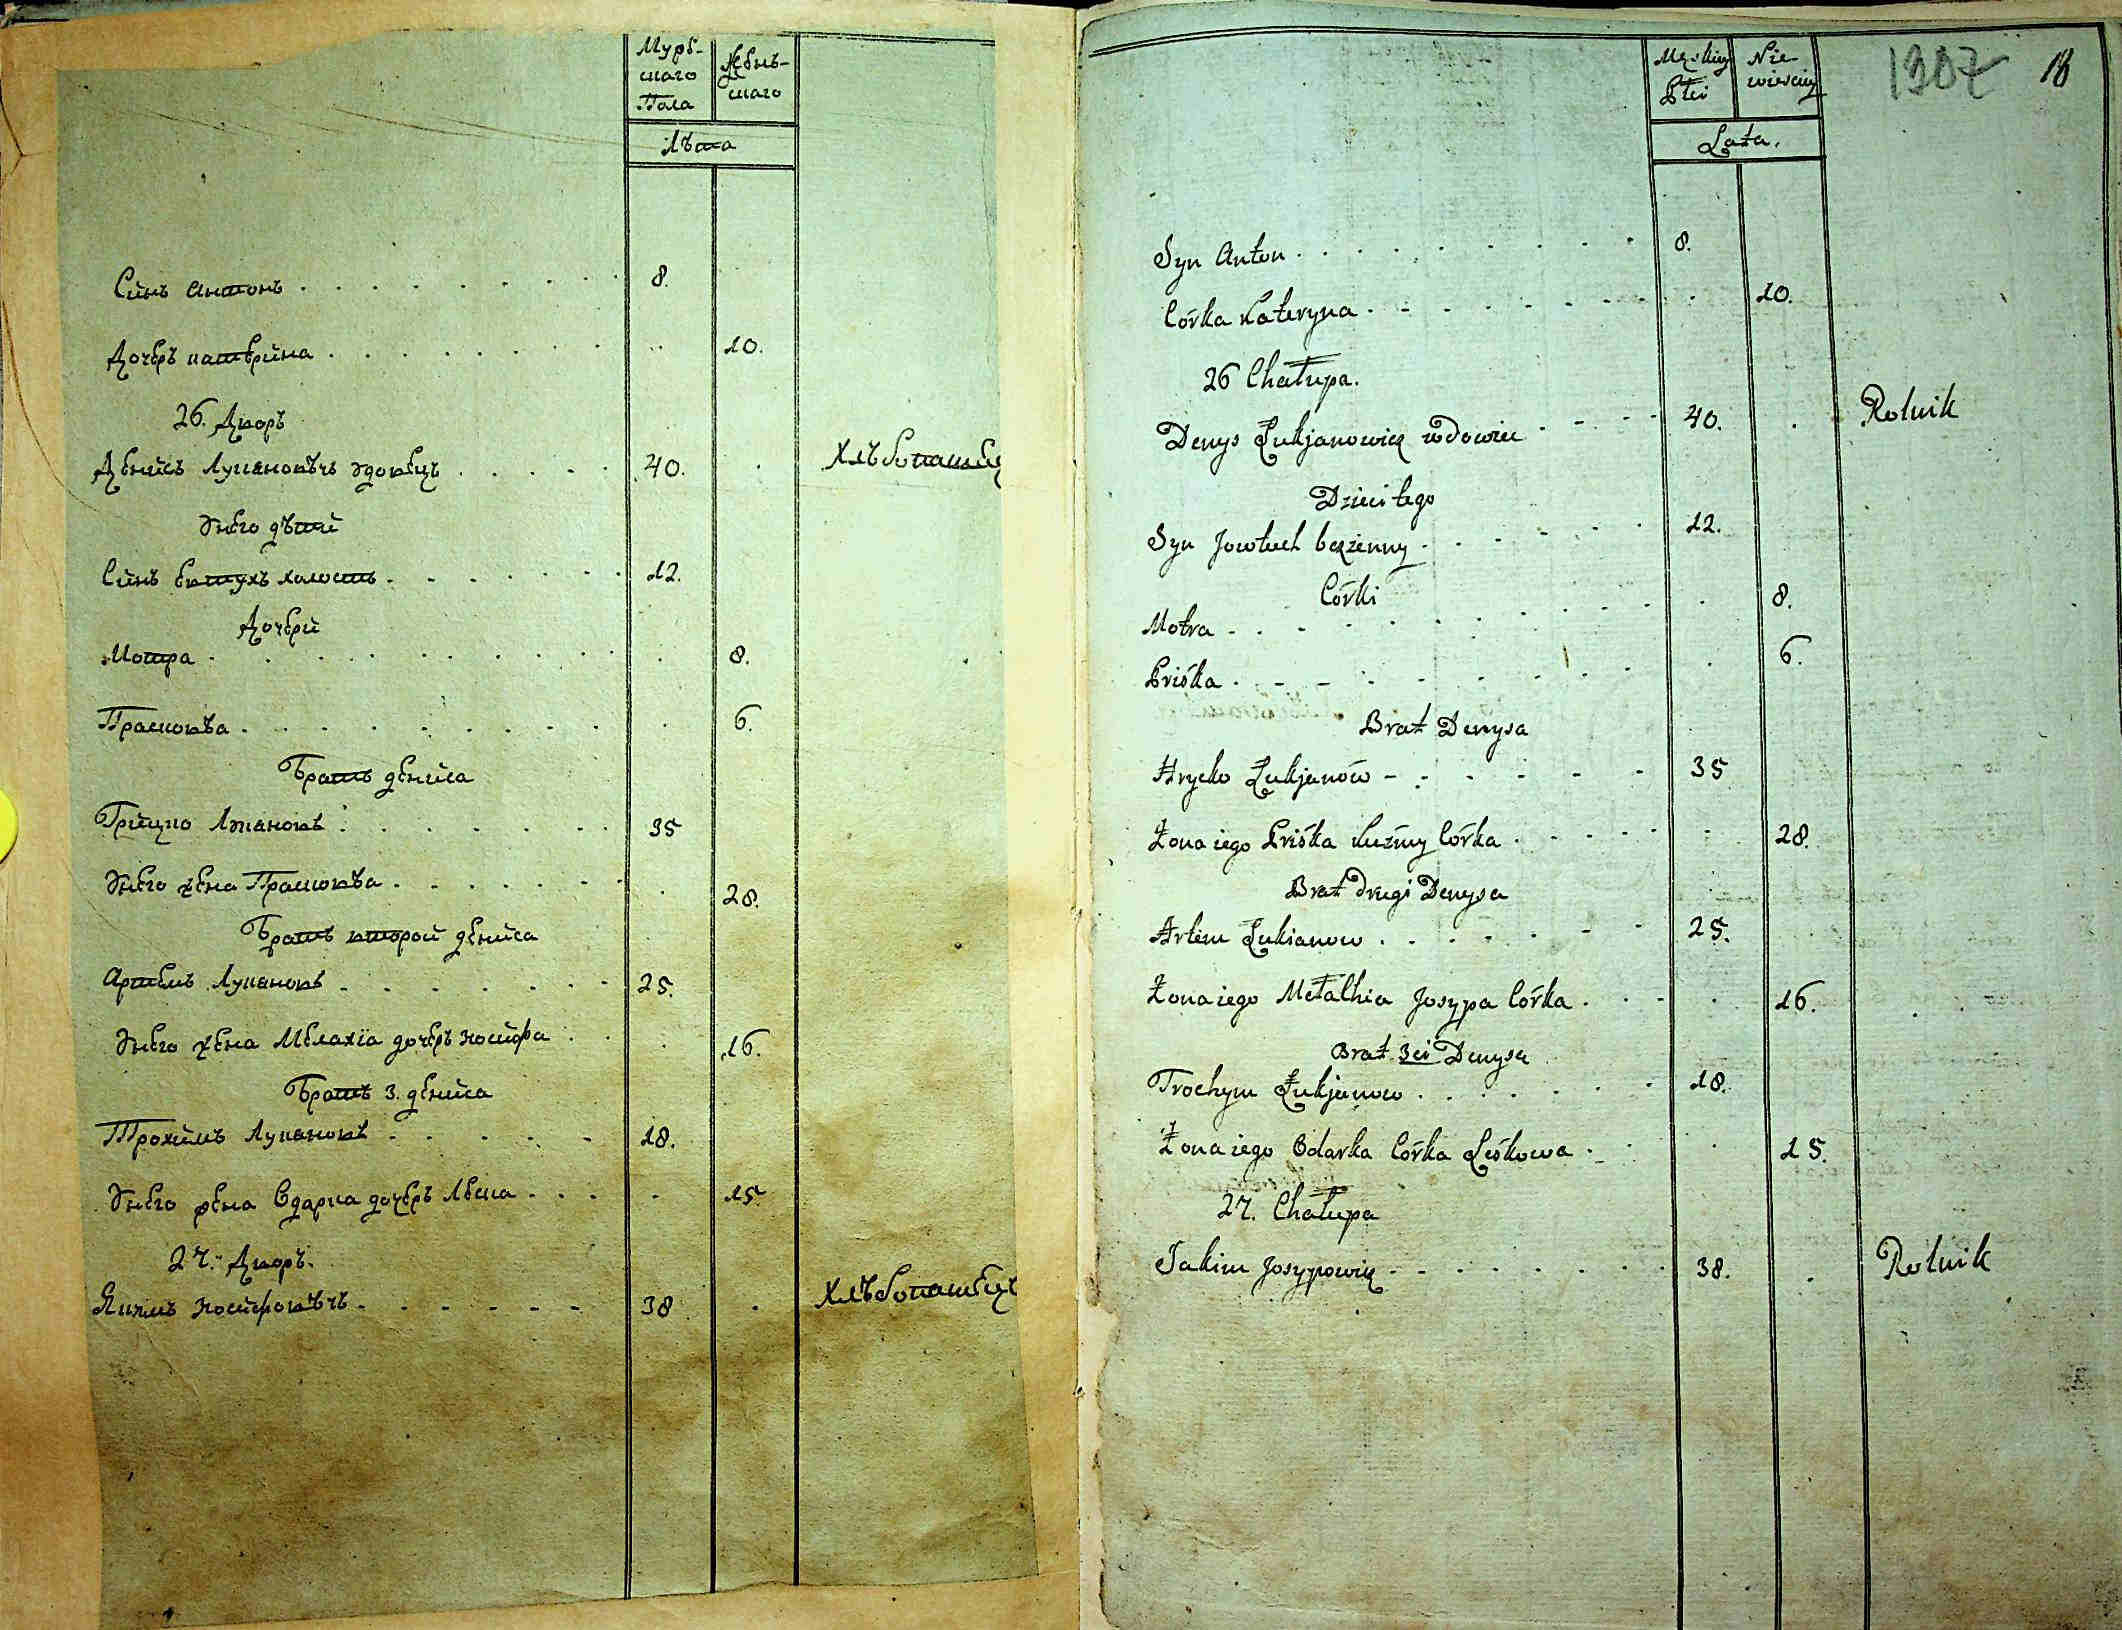 Муже-
скаго
Пола
Женъ-
скаго
Лѣта
Синъ Антонъ . . . . . . . . . 8.
Дочеръ катерина . . . . . . . . 10.
26. Дворъ
Денисъ Лукяновѣчъ вдовецъ . . . . . 40. . Хлѣбопашец
Унего дѣти
Синъ Евтухъ холостъ . . . . . . 12.
Дочери
Мотра . . . . . . . . . . 8.
Прасковѣа . . . . . . . . . 6.
Братъ дениса
Грицко Лукяновъ . . . . . . . 35
Унего жена Прасковѣа . . . . . . . 28.
Братъ второй дениса
Артемъ Лукяновъ . . . . . . . 25.
Унего жена Мелахїа дочеръ иосифа . . . 16.
Братъ 3. дениса
Трохимъ Лукяновъ . . . . . 18.
Унего жена Одарка дочеръ Леска . . . . 15.
27. Дворъ.
Якимъ иосифовѣчъ . . . . . . 38 . Хлѣбопашецъ
Męskiey
Płci
Nie-
wiesciey
1307 18
Lata.
Syn Anton . . . . . . . . . 8.
Córka Kateryna . . . . . . . . 10.
26 Chałupa.
Denys Łukjanowicz wdowiec . . . . 40. . Rolnik
Dzieci tego
Syn Jowtuch bezżenny . . . . . 12.
Córki
Motra . . . . . . . . . 8.
Priśka . . . . . . . . 6.
Brat Denysa
Hrycko Łukjanów . . . . . . 35
Żona iego Priśka Kuźmy Córka . . . . . 28.
Brat drugi Denysa
Artem Łukianow . . . . . . 25.
Żona iego Mełałhia Josypa Córka . . . . 16.
Brat 3ci Denysa
Trochym Łukjanow . . . . . . 18.
Żona iego Odarka Córka Leśkowa . . . 15.
27. Chałupa
Jakim Josypowicz . . . . . . . 38. . Rolnik